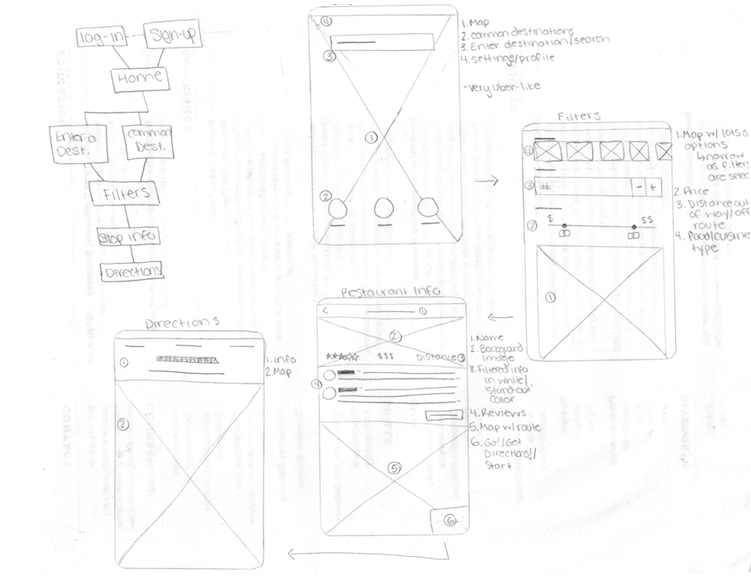 log-in
Sign-up
Home
Enter a
Dest.
common
Dest.
Filters
Stop info
Directions
4
3
1
2
1. Map
2. common destinations
3. Enter destination/search
4. settings/profile
-very uber-like
Filters
4
3
##
- +
2
$ $$
1
1. Map w/ lots o
options
narrow
as filters
are selec
2. Price
3. Distance out
of way/off
route
4. Food/cuisine
type
Restaurant Info
<
1
2
$$$ Distance 3
4
5
6
1. Name
2. Background
image
3. Filtered info
in white/
stand out
color
4. Reviews
5. Map w/route
6. Go!/Get
Directions!/
Start
Directions
1
2
1. info
2. Map